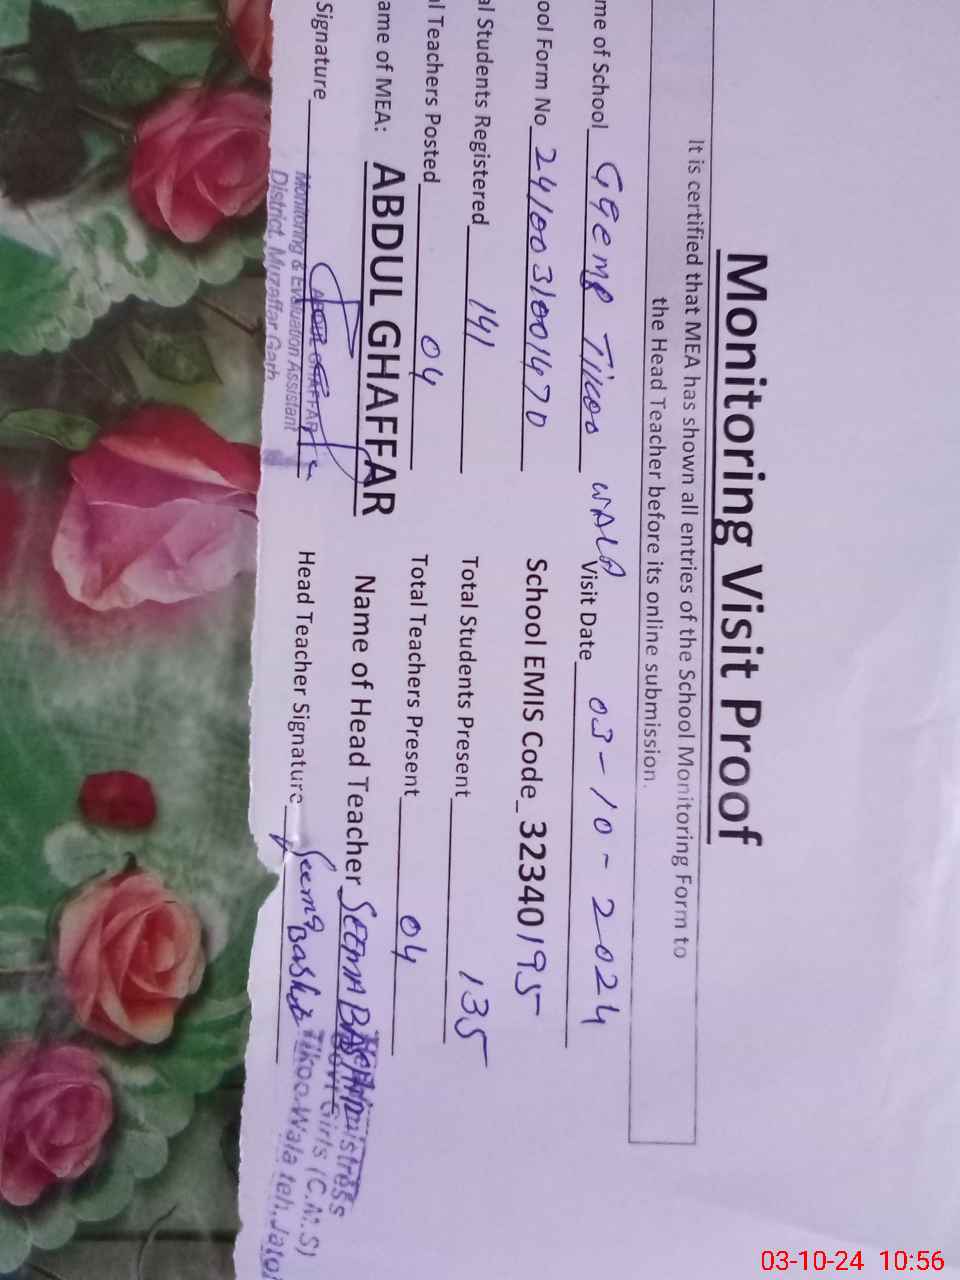 Monitoring Visit Proof
It is certified that MEA has shown all entries of the School Monitoring Form to
the Head Teacher before its online submission.
me of School GGemp Tikoo WALA Visit Date 03-10-2024
ool Form No 24100310001470 School EMIS Code_32340195
al Students Registered 141 Total Students Present 135
al Teachers Posted 04 Total Teachers Present 04
ame of MEA: ABDUL GHAFFAR Name of Head Teacher SEEMA BASHIR
Signature Head Teacher Signature Seema Bashir
ABDUL GHAFFAR
Monitoring & Evaluation Assistant
District Muzaffar Garh
Headmistress
Govt Girls (C.M.S)
Tikoo Wala teh, Jatoi
03-10-24 10:56